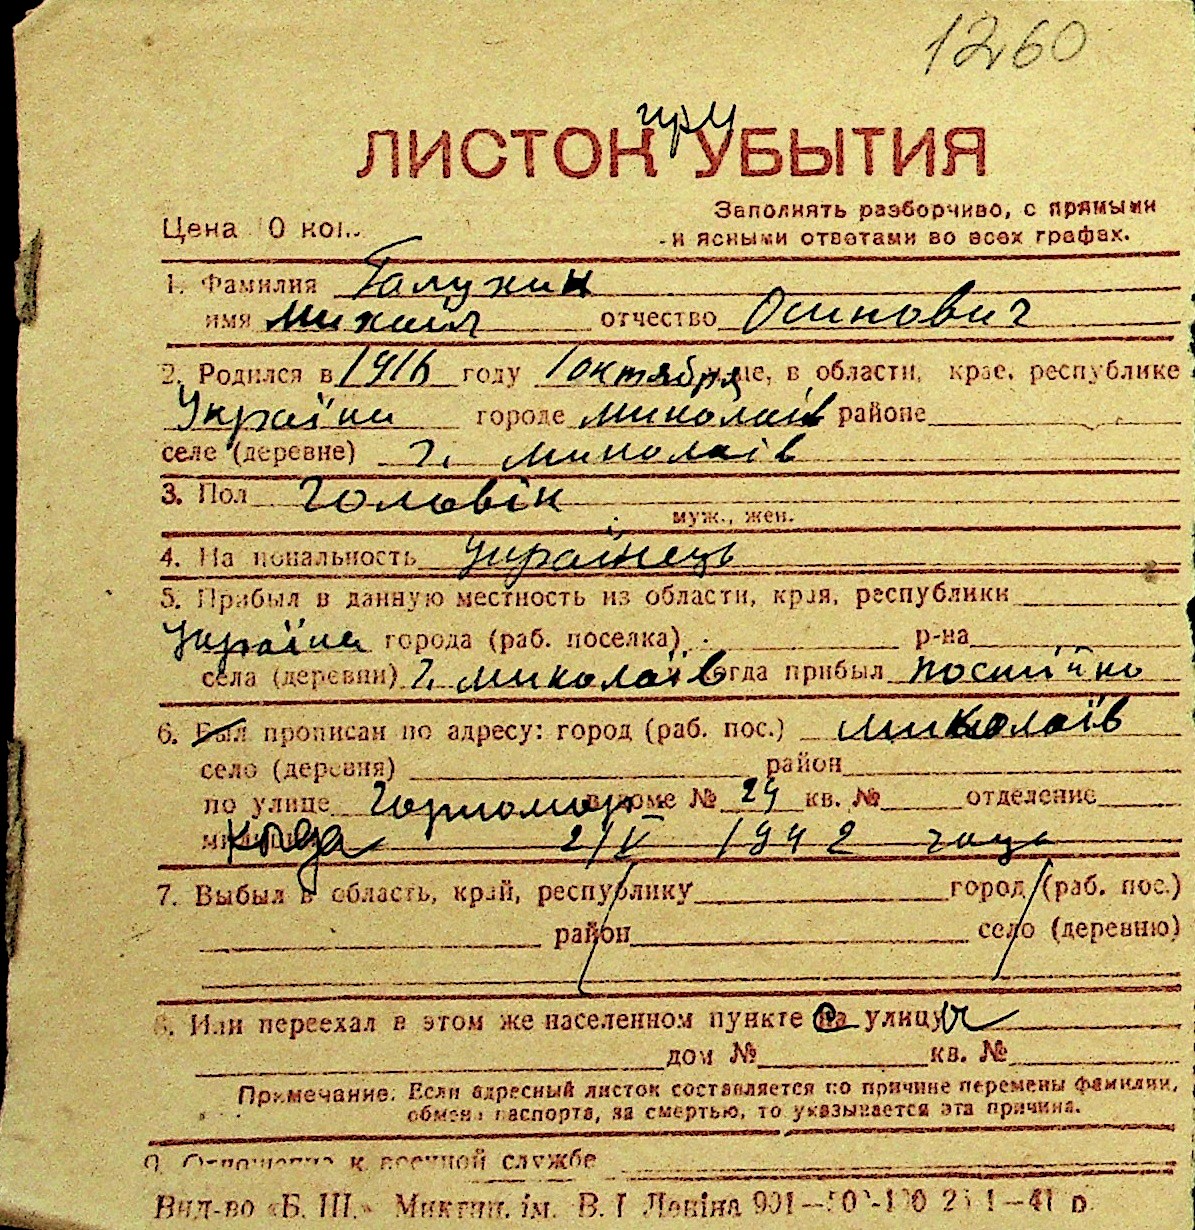 1260
при
ЛИСТОК УБЫТИЯ
Заполнять разборчиво, с прямыми
Цена 0 коп.
и ясными ответами во всех графах.
1. Фамилия Галунин
имя Михаіл отчество Осипович
2. Родился в 1916 году 1 октября це, в области, крае, республике
Україна городе Миколаїв районе
селе (деревне) г. Миколаів
3. Пол Чоловік
муж., жен.
4. Национальность Українець
5. Прибыл в данную местность из области, края, республики
Україна города (раб. поселка) р-на
села (деревни) г. Миколаїв когда прибыл постійно
6. Был прописан по адресу: город (раб. пос.) Миколаїв
село (деревня) район
по улице Чорномор в доме № 24 кв. № отделение
милиции когда 2/V 1942 года
7. Выбыл в область, край, республику город (раб. пос.)
район село (деревню)
8. Или переехал в этом же населенном пункте на улицу
дом № кв. №
Примечание: Если адресный листок составляется по причине перемены фамилии,
обмена паспорта, за смертью, то указывается эта причина.
9. Отношение к военной службе
Вид-во «Б. Ш.» Микгин. ім. В. І Леніна 901—50 -100 25 1—41 р.